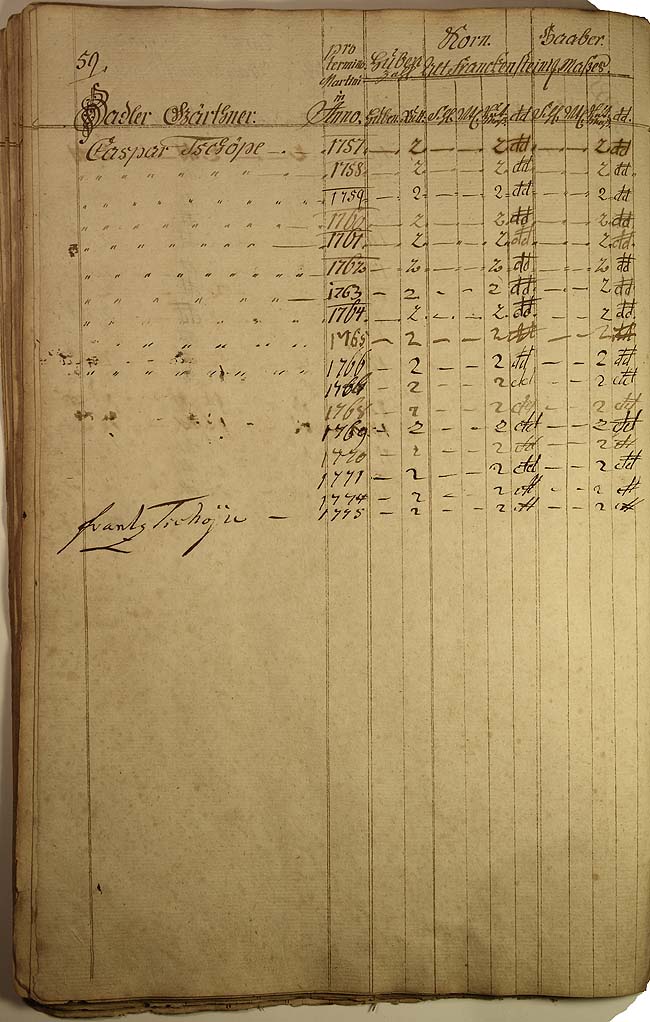 59.
Korn. Haaber.
pro termino Martini in Anno. Huben Zahl Franckensteinisch Maßes.
Sadler Gärthner. Huben. Rutt. Schl. Mtz. dd. Schl. Mtz. dd.
Caspar Tschöpe — 1757. — 2 — — 2 dd — — 2 dd
" " " " " " " 1758. — 2 — — 2 dd — — 2 dd
" " " " " " " 1759 — 2 — — 2 dd — — 2 dd
" " " " " " " — 2 — — 2 dd — — 2 dd
" " " " " " — 1761. — 2 — — 2 dd — — 2 dd
" " " " " " " 1762 — 2 — — 2 dd — — 2 dd
" " " " " — 1763 — 2 — — 2 dd — — 2 dd
" " " " " " " 1764 — 2 — — 2 dd — — 2 dd
" " " " " " " 1765 — 2 — — 2 dd — — 2 dd
" " " " " " " 1766 — 2 — — 2 dd — — 2 dd
— 2 — — 2 dd — — 2 dd
1768 — 2 — — 2 dd — — 2 dd
1769 — 2 — — 2 dd — — 2 dd
1770 — 2 — — 2 dd — — 2 dd
1771 — 2 — — 2 dd — — 2 dd
1774 — 2 — — 2 dd — — 2 dd
Frantz Tschöpe — 1775 — 2 — — 2 dd — — 2 dd